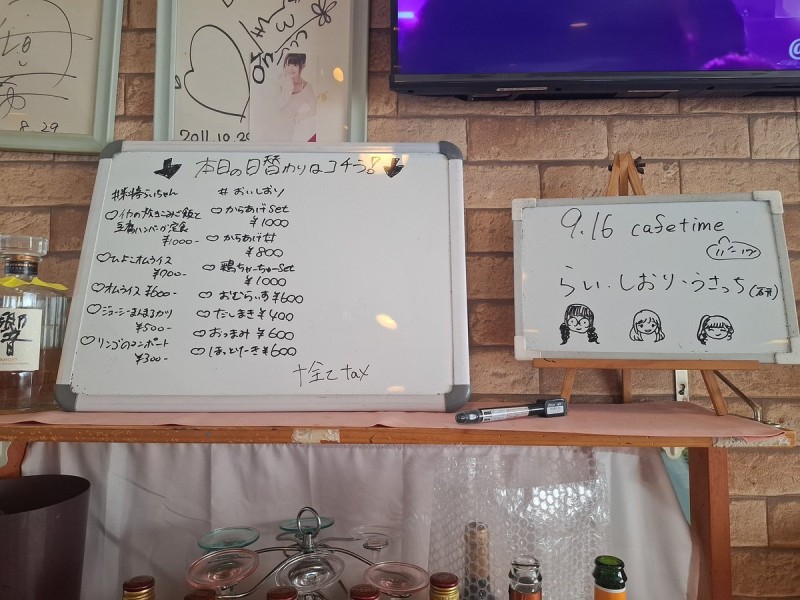 8.29
2011.10.29
本日の日替わりはコチラ!
#株持らいちゃん
♡イカの炊きこみご飯と
豆腐ハンバーグ定食
¥1000-
♡ひよこオムライス
¥700-
♡オムライス ¥600-
♡ジューシーまんまるカツ
¥500-
♡リンゴのコンポート
¥300-
#おいしおり
♡からあげset
¥1000
♡からあげ丼
¥800
♡鶏ちゃーちゅーset
¥1000
♡おむらいす¥600
♡だしまき¥400
♡おつまみ ¥600
♡ほっとけーき¥600
+全てtax
9.16 cafetime
11-17
らい・しおり・うさっち
響
@